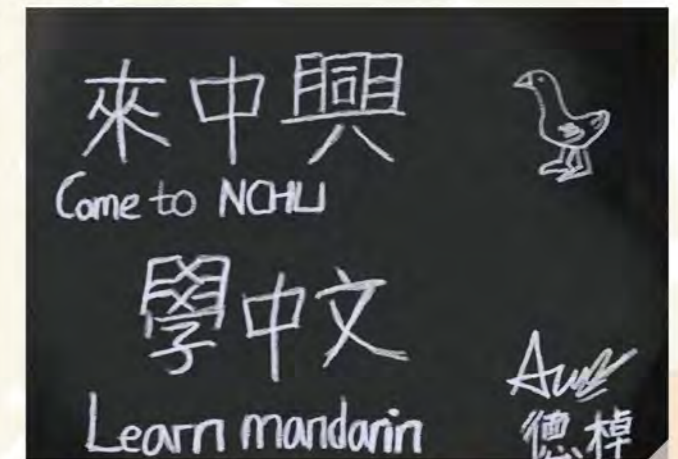 來中興
Come to NCHU
學中文
Learn mandarin
德棹